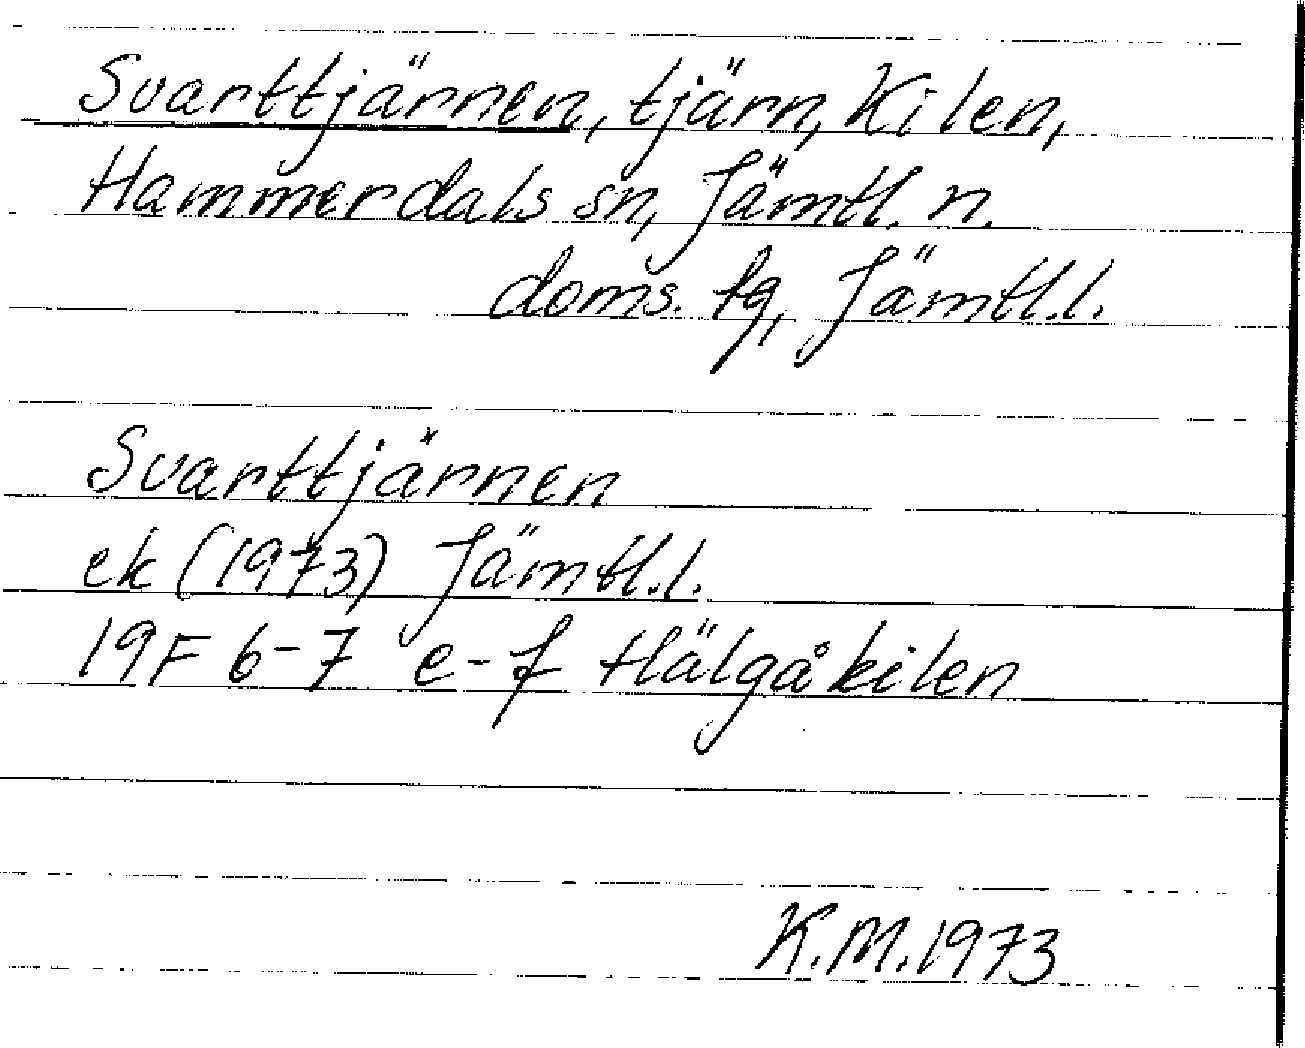 Svarttjärnen, tjärn, Kilen,
Hammerdals sn, Jämtl. n.
doms. fg, Jämtl.l.
Svarttjärnen
ek (1973) Jämtl.l.
19F 6-7 e-f Hälgåkilen
K.M.1973